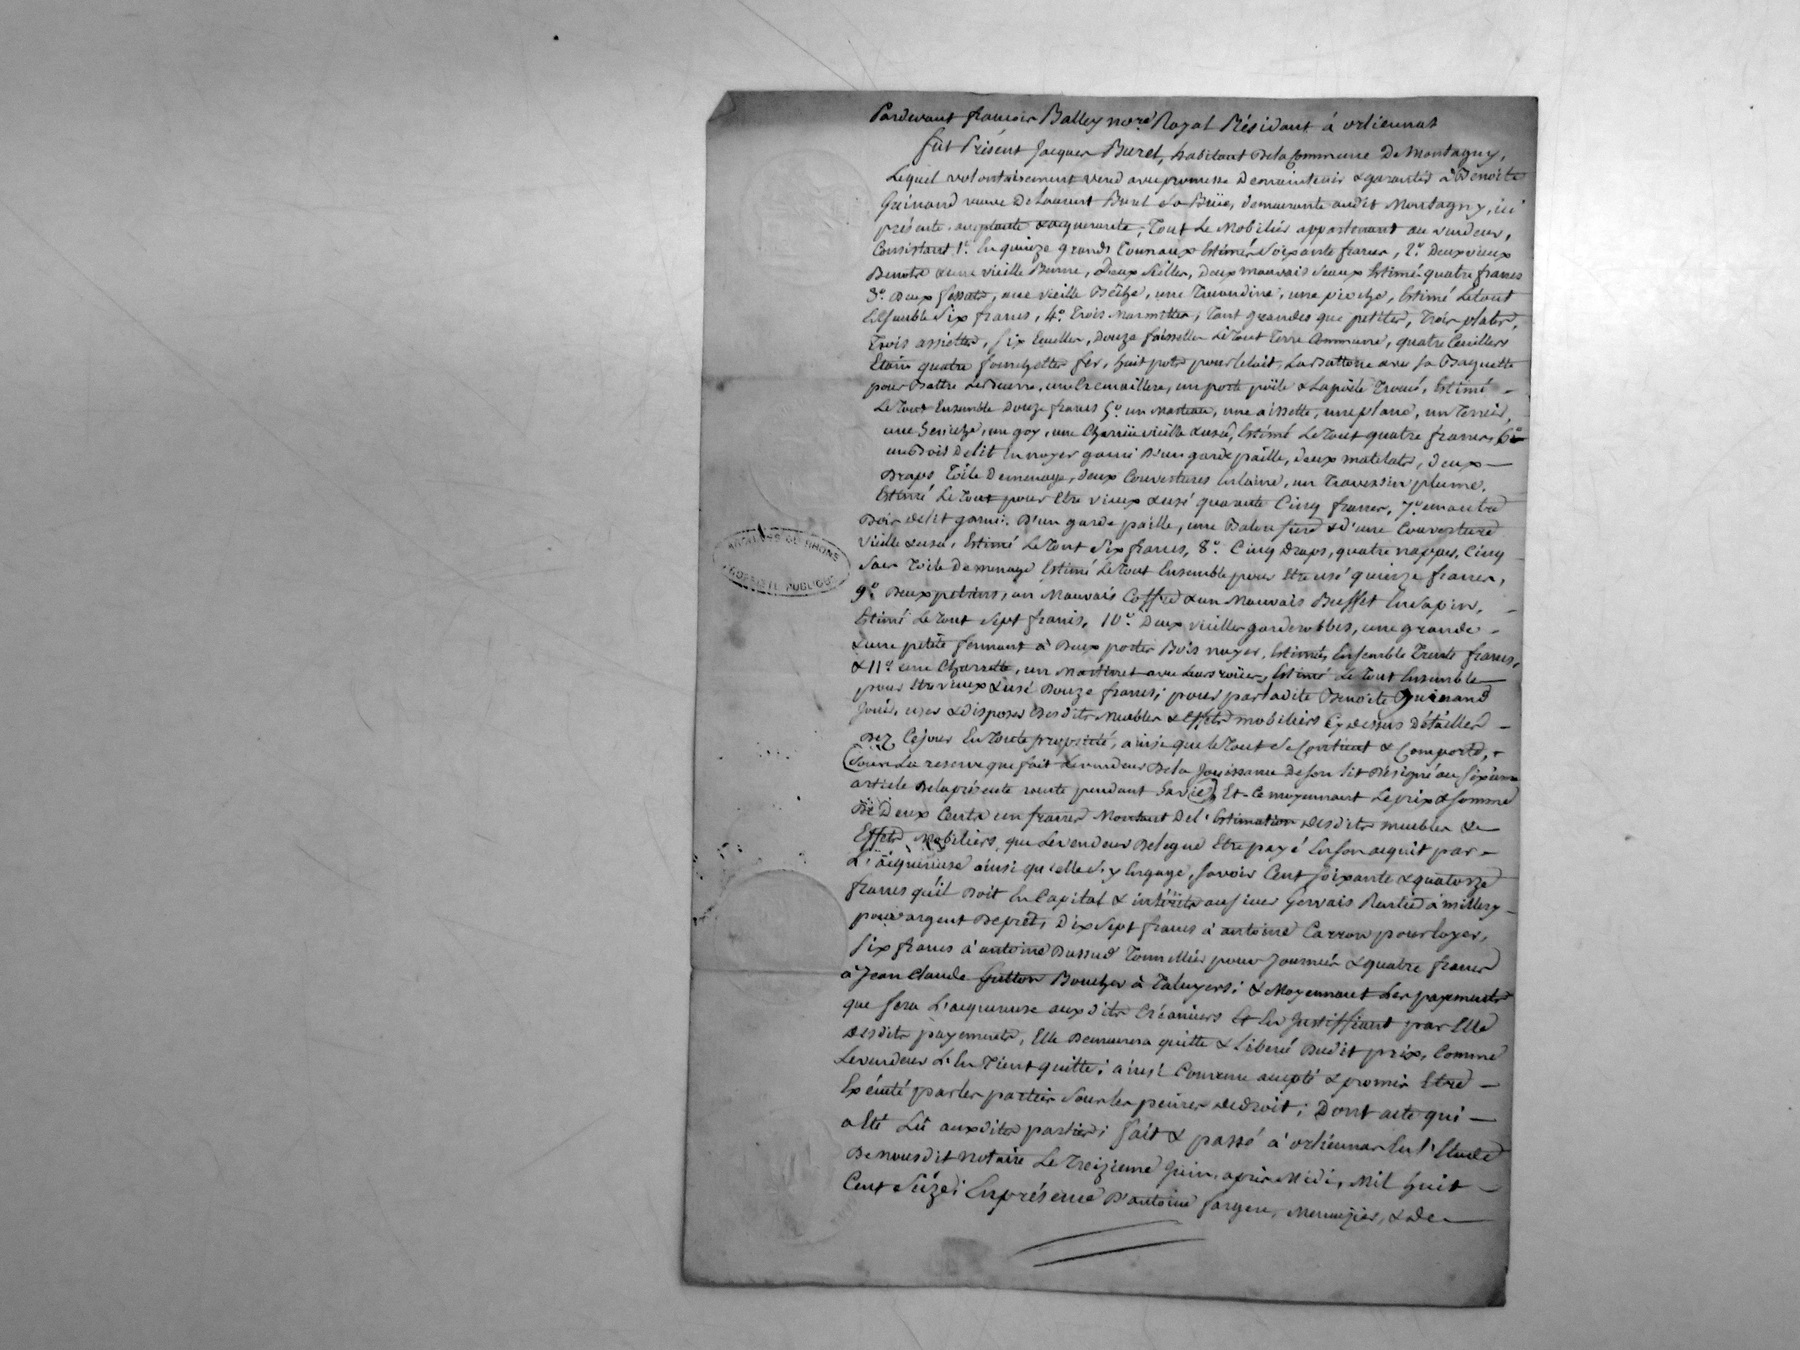 Pardevant françois Balley no.re Royal Résidant à orliennas
fut Présent Jacques Burel, habitant de la Commune de Montagny,
Lequel volontairement vend avec promesse de maintenir & garantir à Benoite
Guinand veuve de Laurent Burel sa Brüe, demeurante audit Montagny, ici
présente, acceptante & acquerante, Tout Le Mobilier appartenant au vendeur,
Consistant 1.° En quinze grands Tonnaux Estimés Soixante francs, 2.° deux vieux
Benots & une vieille Benne, deux Seilles, deux mauvais Seaux Estimé quatre francs
3.° deux fessous, une vieille Bêche, une Triandine, une pioche, Estimé Le tout
Ensemble Six francs, 4.° Trois Marmittes, Tant grandes que petites, Trois plats,
Trois assiettes, Six Ecuelles, douze faisselles Le Tout Terre Commune, quatre Cuillers
Etain quatre fourchettes fer, huit pots pour le lait, La Battoire avec sa Baguette
pour Battre Le Beurre, une Cremaillere, un porte poële & La poële Troué, Estimé
Le Tout Ensemble douze francs 5.° un Marteau, une aissette, une plane, un Terrié,
une Serieche, un goy, une Charrüe vieille & usé, Estimé Le Tout quatre francs, 6.°
un Bois de lit En noyer garni d'un garde paille, deux matelats, deux
Draps Toile de menage, deux Couvertures En laine, un Traversin plume,
Estimé Le Tout pour Etre vieux & usé quarante Cinq francs, 7.° un autre
Bois de lit garni d'un garde paille, une Balou fiere & d'une Couverture
vieille & usé, Estimé Le Tout Six francs, 8.° Cinq draps, quatre nappes, Cinq
Sacs Toile de menage Estimé Le Tout Ensemble pour Etre usé quinze francs,
9.° Deux petrins, un Mauvais Coffre & un Mauvais Buffet En Sapin,
Estimé Le Tout Sept francs, 10.° Deux vieilles garderobbes, une grande
& une petite fermant à Deux portes Bois noyer, Estimés Ensemble Trente francs,
& 11.° une Charrette, un Martinet avec Leurs roües, Estimé Le Tout Ensemble
pour Etre vieux & usé Douze francs; pour par ladite Benoite Guinand
Jouir, user & disposer desdits Meubles & Effets mobiliers Cy dessus détaillés
Dez Ce jour En Toute propriété, ainsi que le Tout Se Contient & Comporte,
(Sous La reserve que fait Le vendeur de la Jouissance de son lit désigné au Sixieme
article De la présente vente pendant Sa vie) Et Ce moyennant Le prix & Somme
De Deux Cents un francs Montant de l'Estimation desdits meubles &
Effets Mobiliers, que Le vendeur Delegue Etre payé En son acquit par
L'acquereuse ainsi qu'elle S'y Engage, Savoir Cent soixante & quatorze
francs qu'il Doit En Capital & intérêts au Sieur Gervais à millery
pour argent De prêt, Dix Sept francs à antoine Carron pour loyer,
Six francs à antoine Dussud Tonnellier pour Journées & quatre francs
à Jean Claude Gutton Boucher à Taluyers; & Moyennant Les payements
que fera L'acquereuse auxdits Créanciers Et En Justiffiant par Elle
desdits payements, Elle Demeurera quitte & Liberé Dudit prix, Comme
Le vendeur L'En Tient quitte; ainsi Convenu accepté & promis Etre
Exécuté par les parties Sous les peines de droit; Dont acte qui
a Eté Lû auxdites parties; fait & passé à orliennas En l'Etude
De nousdit Notaire Le Treizieme Juin, après Midi, Mil huit
Cent Seize; En présence D'antoine fargere, Menuzier, & de
ARCHIVES DU RHONE
PROPRIETE PUBLIQUE